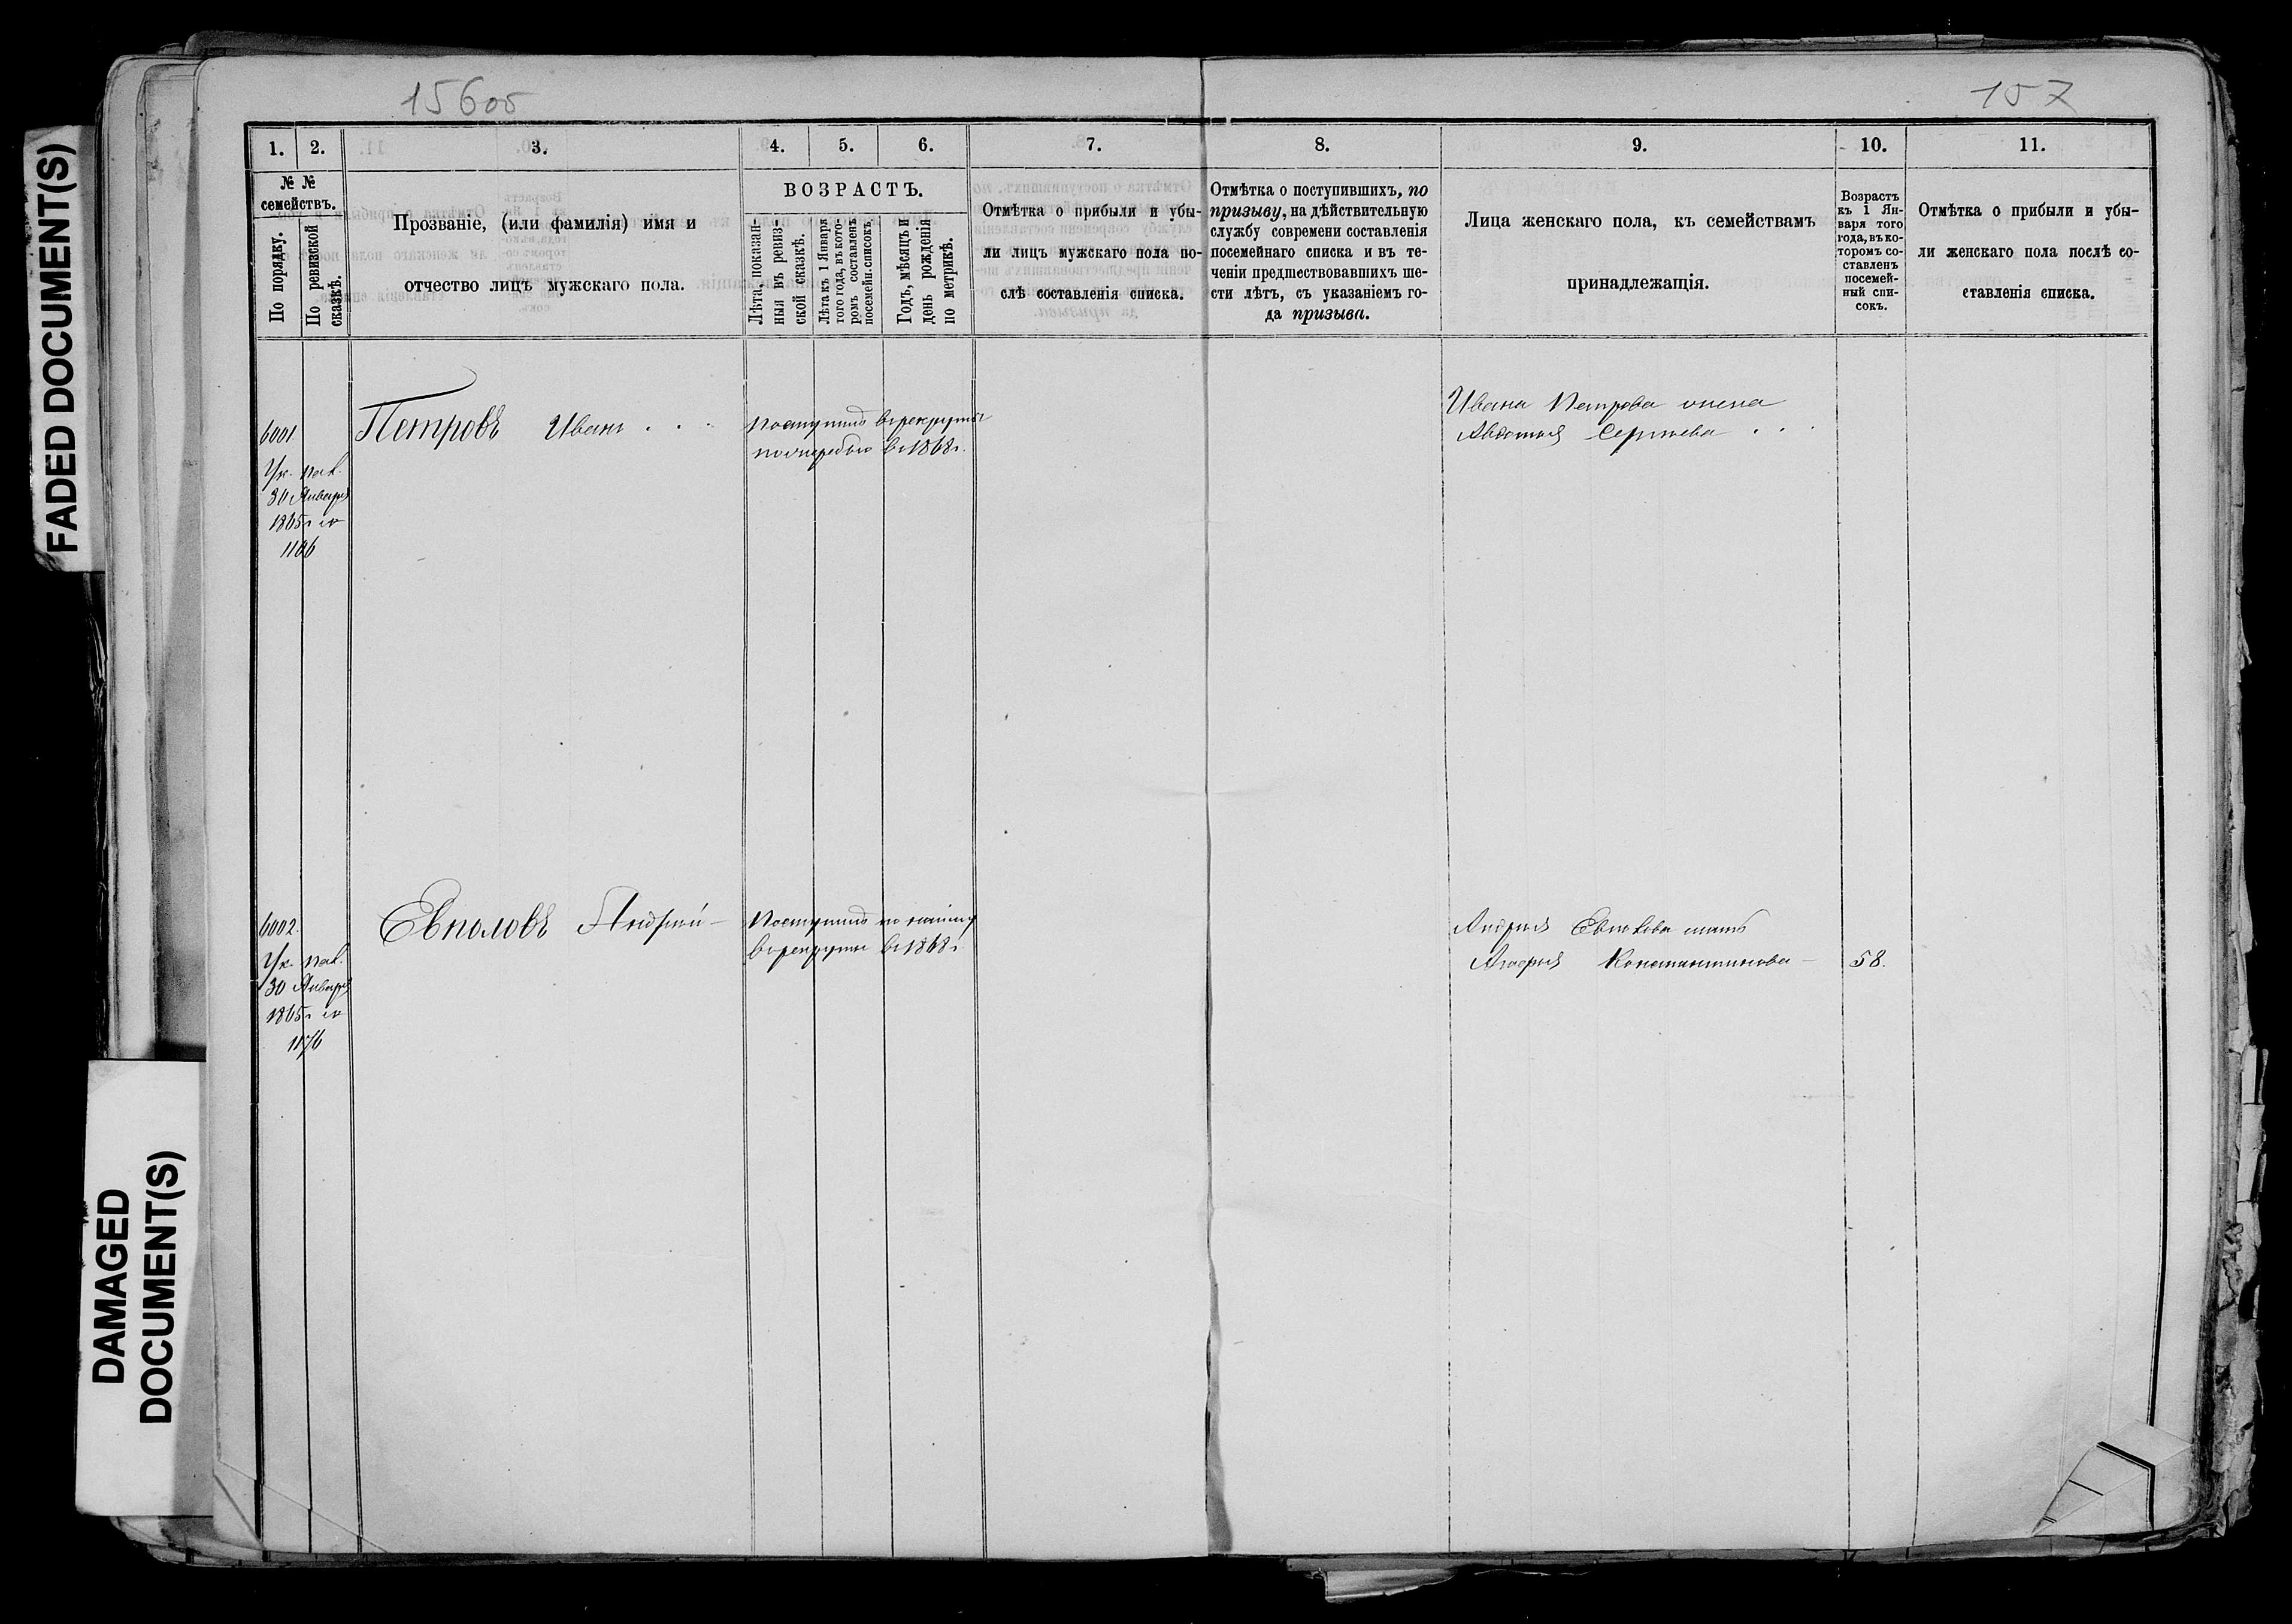 FADED DOCUMENT(S)
DAMAGED
DOCUMENT(S)
156об
157
1. 2. 3. 4. 5. 6. 7. 8. 9. 10. 11.
№ №
семействъ.
По порядку.
По ревизской
сказкѣ.
Прозваніе, (или фамилія) имя и
отчество лицъ мужскаго пола.
ВОЗРАСТЪ.
Лѣта, показан-
ныя въ ревиз-
ской сказкѣ.
Лѣта къ 1 Января
того года, въ кото-
ромъ составленъ
посемейн. списокъ.
Годъ, мѣсяцъ и
день рожденія
по метрикѣ.
Отмѣтка о прибыли и убы-
ли лицъ мужскаго пола по-
слѣ составленія списка.
Отмѣтка о поступившихъ, по
призыву, на дѣйствительную
службу современи составленія
посемейнаго списка и въ те-
ченіи предшествовавшихъ ше-
сти лѣтъ, съ указаніемъ го-
да призыва.
Лица женскаго пола, къ семействамъ
принадлежащія.
Возрастъ
къ 1 Ян-
варя того
года, въ ко-
торомъ со-
ставленъ
посемей-
ный спи-
сокъ.
Отмѣтка о прибыли и убы-
ли женскаго пола послѣ со-
ставленія списка.
6001
Ук. пал.
30 Января
1865г №
Петровъ Иванъ . . .
Поступилъ въ рекруты
по очереди въ 1868г.
Ивана Петрова жена
Авдотья Сергѣева . . .
6002.
Ук. пал.
30 Января
1865г №
1176
Андрей
Поступилъ по найму
въ рекруты въ 1868г.
Андрея мать
Константинова 58.